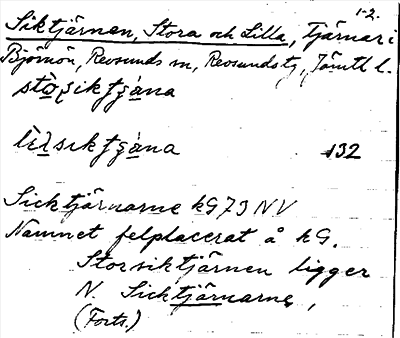 1-2.
Siktjärnen, Stora och Lilla, Tjärnar i
Björnön, Revsunds sn, Revsunds tg, Jämtl l.
132
Sicktjärnarne kG 73 NV
Namnet felplacerat å kG.
Storsiktjärnen ligger
N. Sicktjärnarne,
(Forts.)